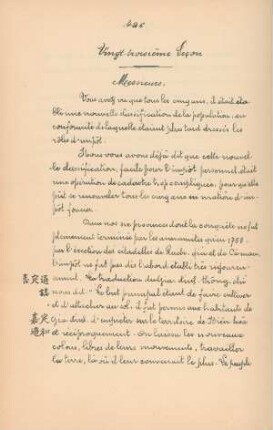 Vingt troisième Leçon
Messieurs,
Vous avez vu que tous les cinq ans, il était éta-
bli une nouvelle classification de la population, en
conformité de laquelle étaient plus tard dressés les
rôles d'impôt.
Nous vous avons déjà dit que cette nouvel-
le classification, facile pour l'impôt personnel, était
une opération de cadastre trop compliquée, pour qu'elle
pût se renouveler tous les cinq ans en matière d'im-
pôt foncier.
Dans nos six provinces dont la conquête ne fut
pleinement terminée par les annamites qu'en
par l'érection des citadelles de
l'impôt ne fut pas dès l'abord établi très rigoureu-
sement. La traduction du Gia dinh thông chi
nous dit " Le but principal étant de faire cultiver
et d'attacher au sol, il fut permis aux habitants de
Gia dinh d'empiéter sur le territoire de Biên hoà
et réciproquement. On laissa les nouveaux
colons, libres de leurs mouvements, travailler
la terre, là où il leur convenait le plus. Le peuple
嘉定通
誌
嘉定
通和